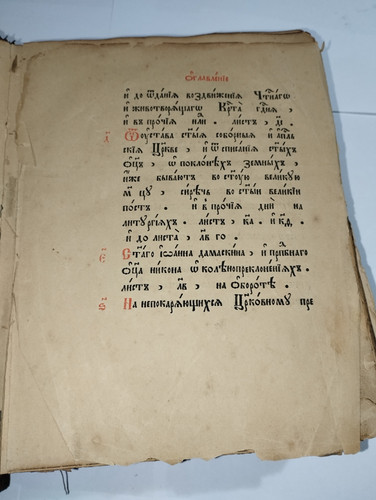 Ѡ҆главле́нїе
и҆ до ѿда́нїѧ воздви́женїѧ Чⷭ҇тна́гѡ
и҆ животворѧ́щагѡ Крⷭ҇та̀ гдⷭ҇нѧ ,
и҆ в̾ про́чїѧ дни̑ . ли́стъ , д҃ .
Ѿ ᲂу҆ста́ва ст҃ы́ѧ собо́рныѧ и҆ а҆пⷭ҇льскїѧ Цр҃кве , и҆ ѿ писа́нїѧ ст҃ы́хъ
Ѻ҆ц҃ъ , ѡ҆ покло́нѣхъ земны́хъ ,
и҆́же быва́ютъ во ст҃у́ю вели́кую
м҃цу , си́рѣчь во ст҃ы́и вели́кїи
по́стъ . и҆ в̾ про́чїѧ дни̑ на
литꙋргі́ѧхъ . ли́стъ , к҃а . и҆ к҃д ,
и҆ до листа̀ , л҃в го .
є҃ Ст҃а́го І҆ѡа́нна дамаски́на , и҆ прⷣбнаго
Ѻ҆ц҃а̀ ни́кона ѡ҆ колѣнопреклоне́нїихъ .
ли́стъ , л҃в , на Ѻ҆боро́тѣ .
ѕ҃ На непокарѧ́ющихсѧ Цр҃ко́вному пре